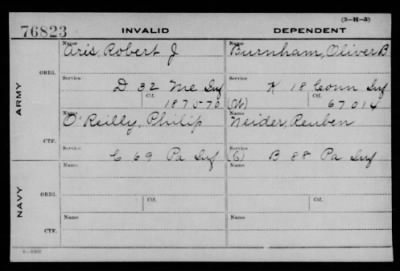 (3-H-3)
76823 INVALID DEPENDENT
Name Name
Aris, Robert J Burnham, Oliver B
ORIG.
Service Service
D 32 Me Inf K 18 Conn Inf
Ctf. Ctf.
(W) 67014
ARMY
Name Name
O'Reilly, Philip Neider, Reuben
CTF.
Service Service
C 69 Pa Inf (C) B 88 Pa Inf
Name Name
ORIG.
Service Ctf. Service Ctf.
NAVY
Name Name
CTF.
Service Service